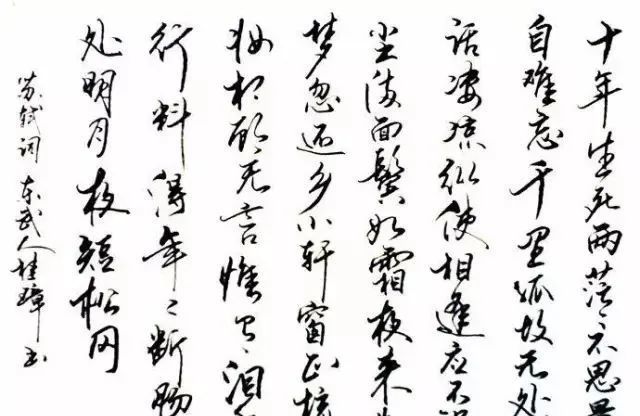 十年生死两茫々不思量
自难忘千里孤坟无处
话凄凉纵使相逢应不
尘满面鬓如霜夜来
梦忽还乡小轩窗正梳
妆相顾无言惟有泪
行料得年々断肠
处明月夜短松冈
苏轼词 东武人桂璋书